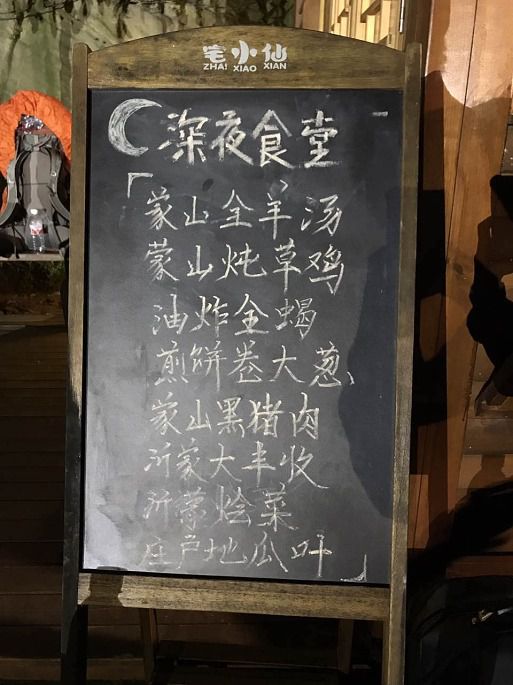 宅小仙
ZHAI XIAO XIAN
深夜食堂
「蒙山全羊汤
蒙山炖草鸡
油炸全蝎
煎饼卷大葱、
蒙山黑猪肉
沂蒙大丰收
沂蒙烩菜
庄户地瓜叶」